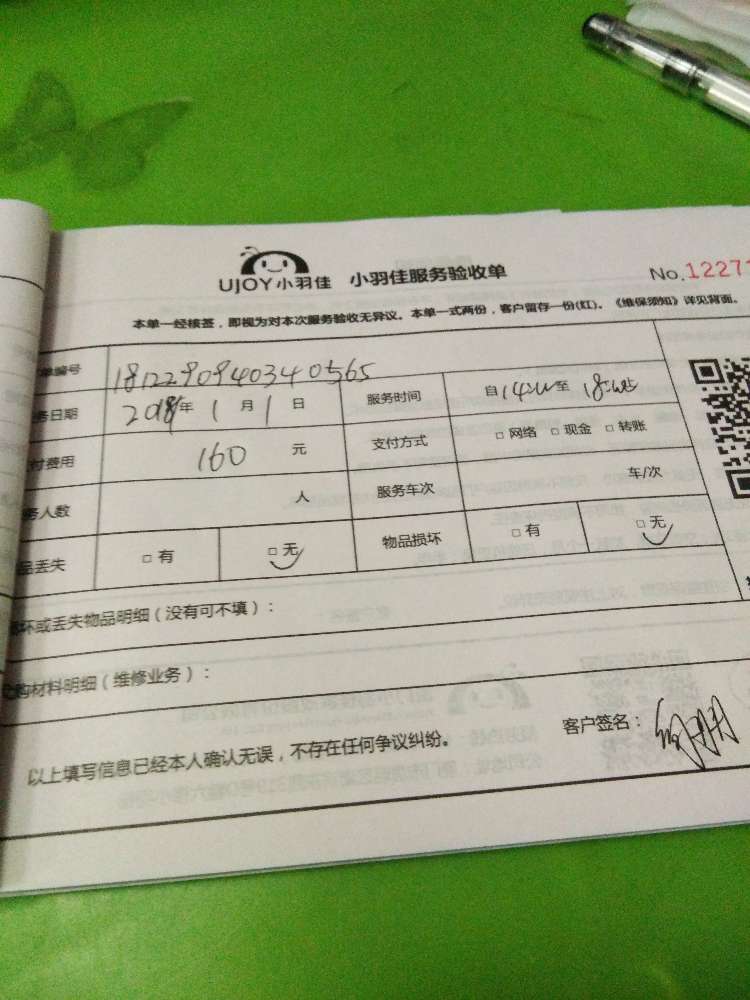 UJOY小羽佳 小羽佳服务验收单 No.12271
本单一经核签，即视为对本次服务验收无异议。本单一式两份，客户留存一份(红)。《维保须知》详见背面。
单编号 1812290940340565
务日期 2018年 1 月 1 日 服务时间 自14:00至 18:00
付费用 160 元 支付方式 □ 网络 □ 现金 □ 转账
务人数 人 服务车次 车/次
品丢失 □ 有 □ 无 物品损坏 □ 有 □ 无
坏或丢失物品明细（没有可不填）：
购材料明细（维修业务）：
以上填写信息已经本人确认无误，不存在任何争议纠纷。 客户签名：